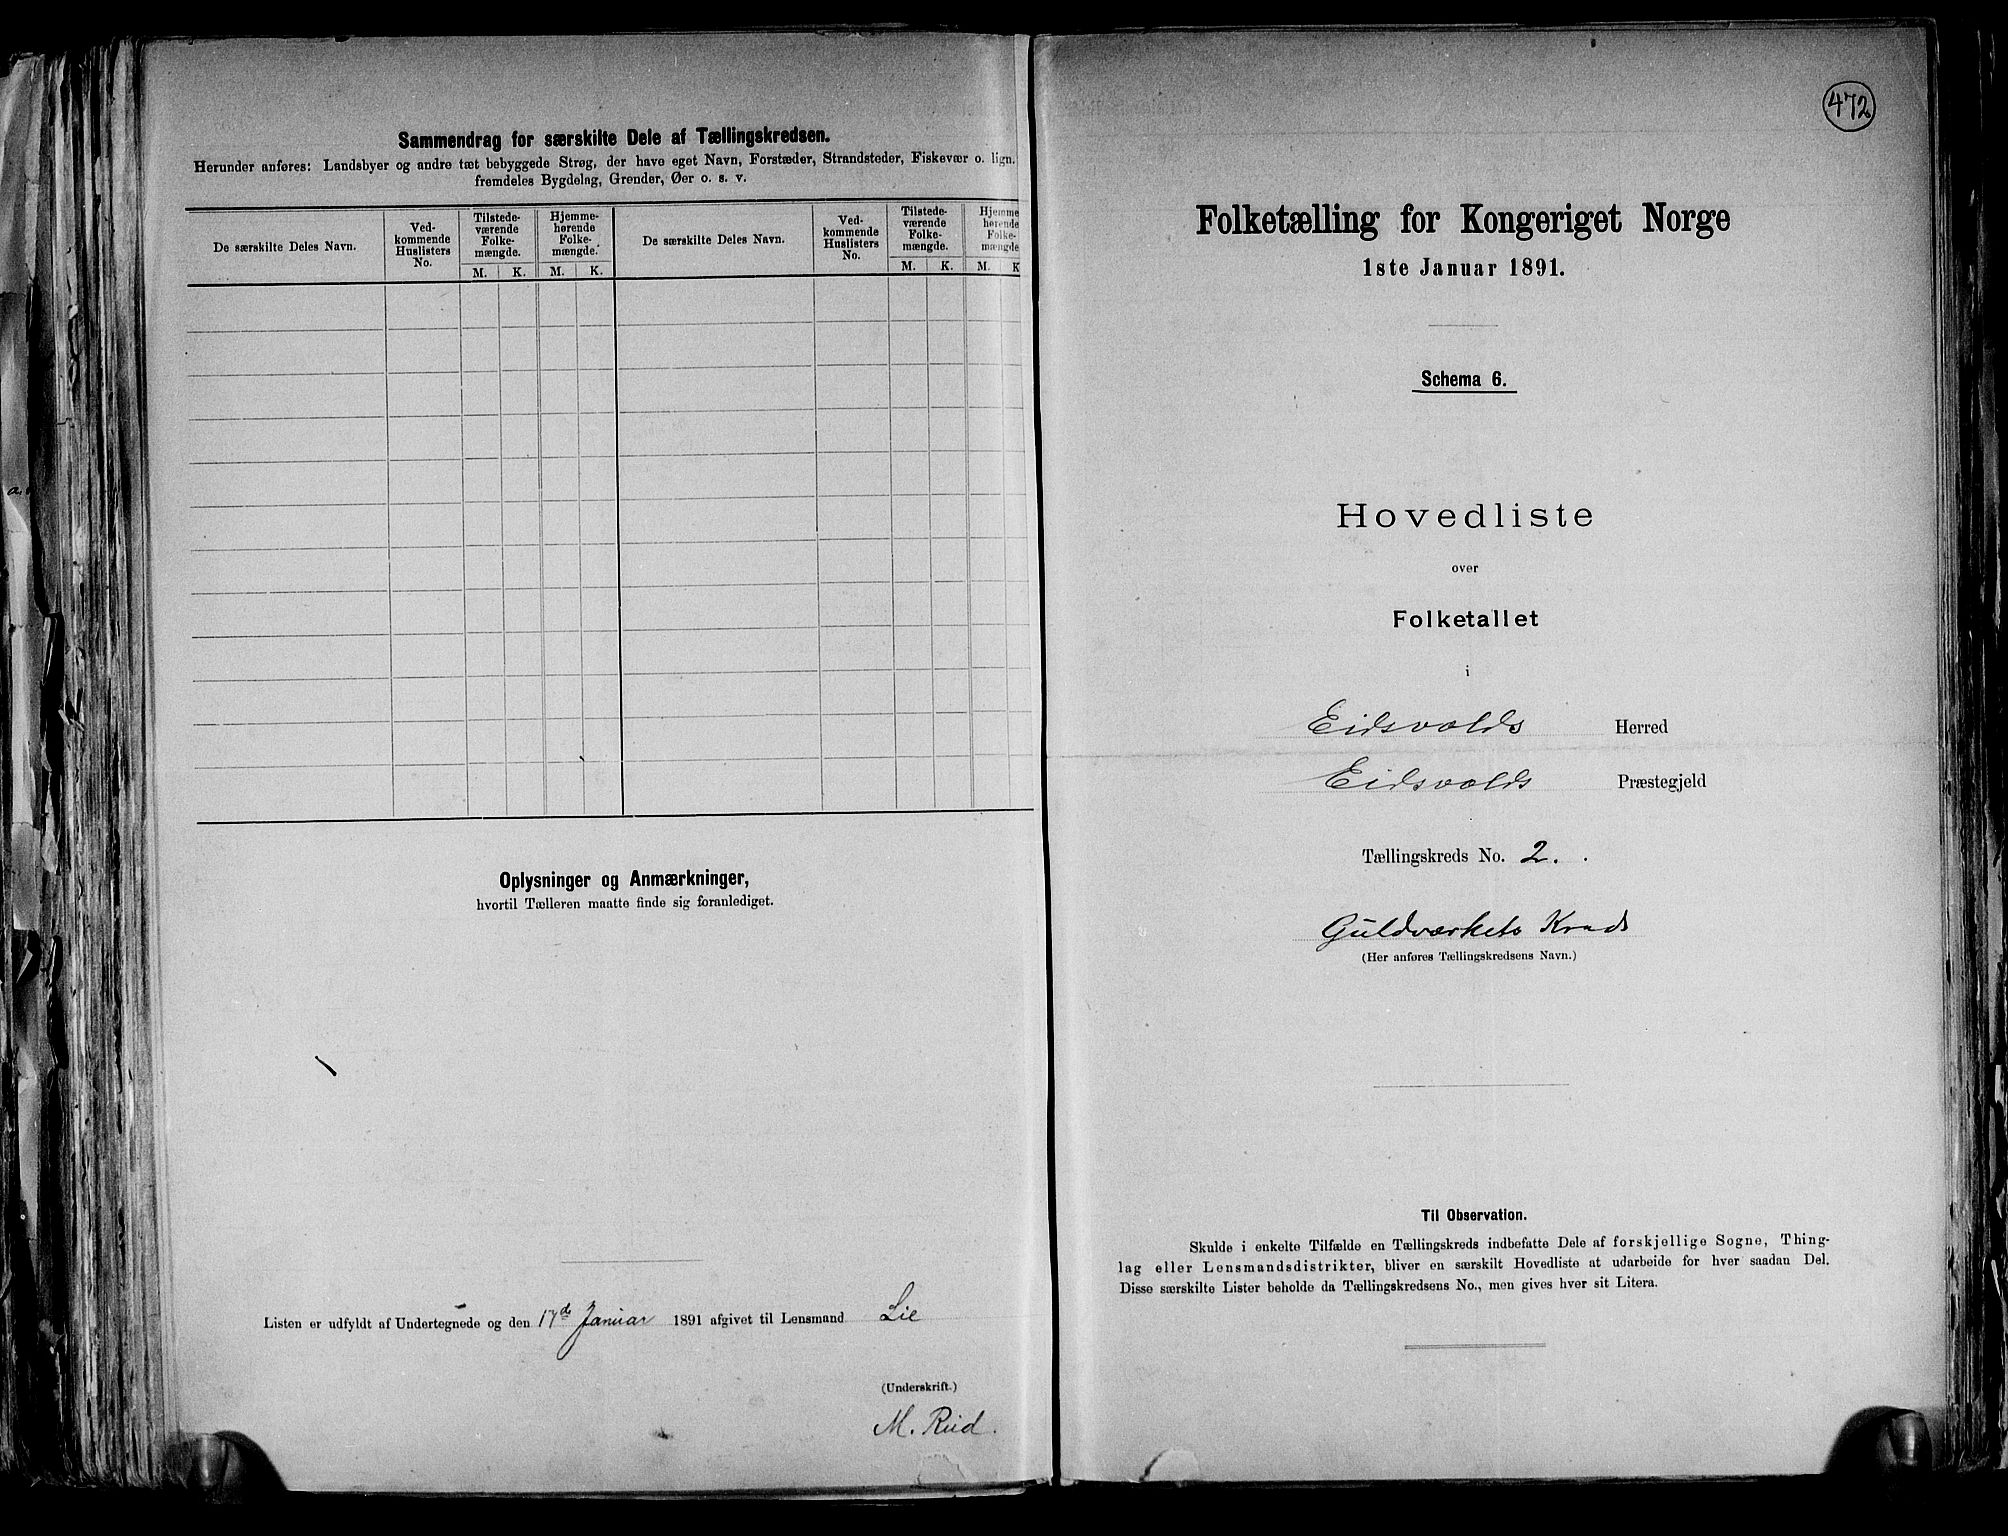 Sammendrag for særskilte Dele af Tællingskredsen.
Herunder anføres: Landsbyer og andre tæt bebyggede Strøg, der have eget Navn, Forstæder, Strandsteder, Fiskevær o. lign.
fremdeles Bygdelag, Grender, Øer o. s. v.
De særskilte Deles Navn.
Ved-
kommende
Huslisters
No.
Tilstede-
værende
Folke-
mængde.
Hjemme-
hørende
Folke-
mængde.
M. K. M. K.
De særskilte Deles Navn.
Ved-
kommende
Huslisters
No.
Tilstede-
værende
Folke-
mængde.
Hjemme
hørende
Folke-
mængde
M. K. M. K
Oplysninger og Anmærkninger,
hvortil Tælleren maatte finde sig foranlediget.
Listen er udfyldt af Undertegnede og den 17de Januar 1891 afgivet til Lensmand Lie
(Underskrift.)
M. Rud.
472
Folketælling for Kongeriget Norge
1ste Januar 1891.
Schema 6.
Hovedliste
over
Folketallet
i
Eidsvolds Herred
Eidsvolds Præstegjeld
Tællingskreds No. 2.
Guldværkets Kreds
(Her anføres Tællingskredsens Navn.)
Til Observation.
Skulde i enkelte Tilfælde en Tællingskreds indbefatte Dele af forskjellige Sogne, Thing-
lag eller Lensmandsdistrikter, bliver en særskilt Hovedliste at udarbeide for hver saadan Del.
Disse særskilte Lister beholde da Tællingskredsens No., men gives hver sit Litera.